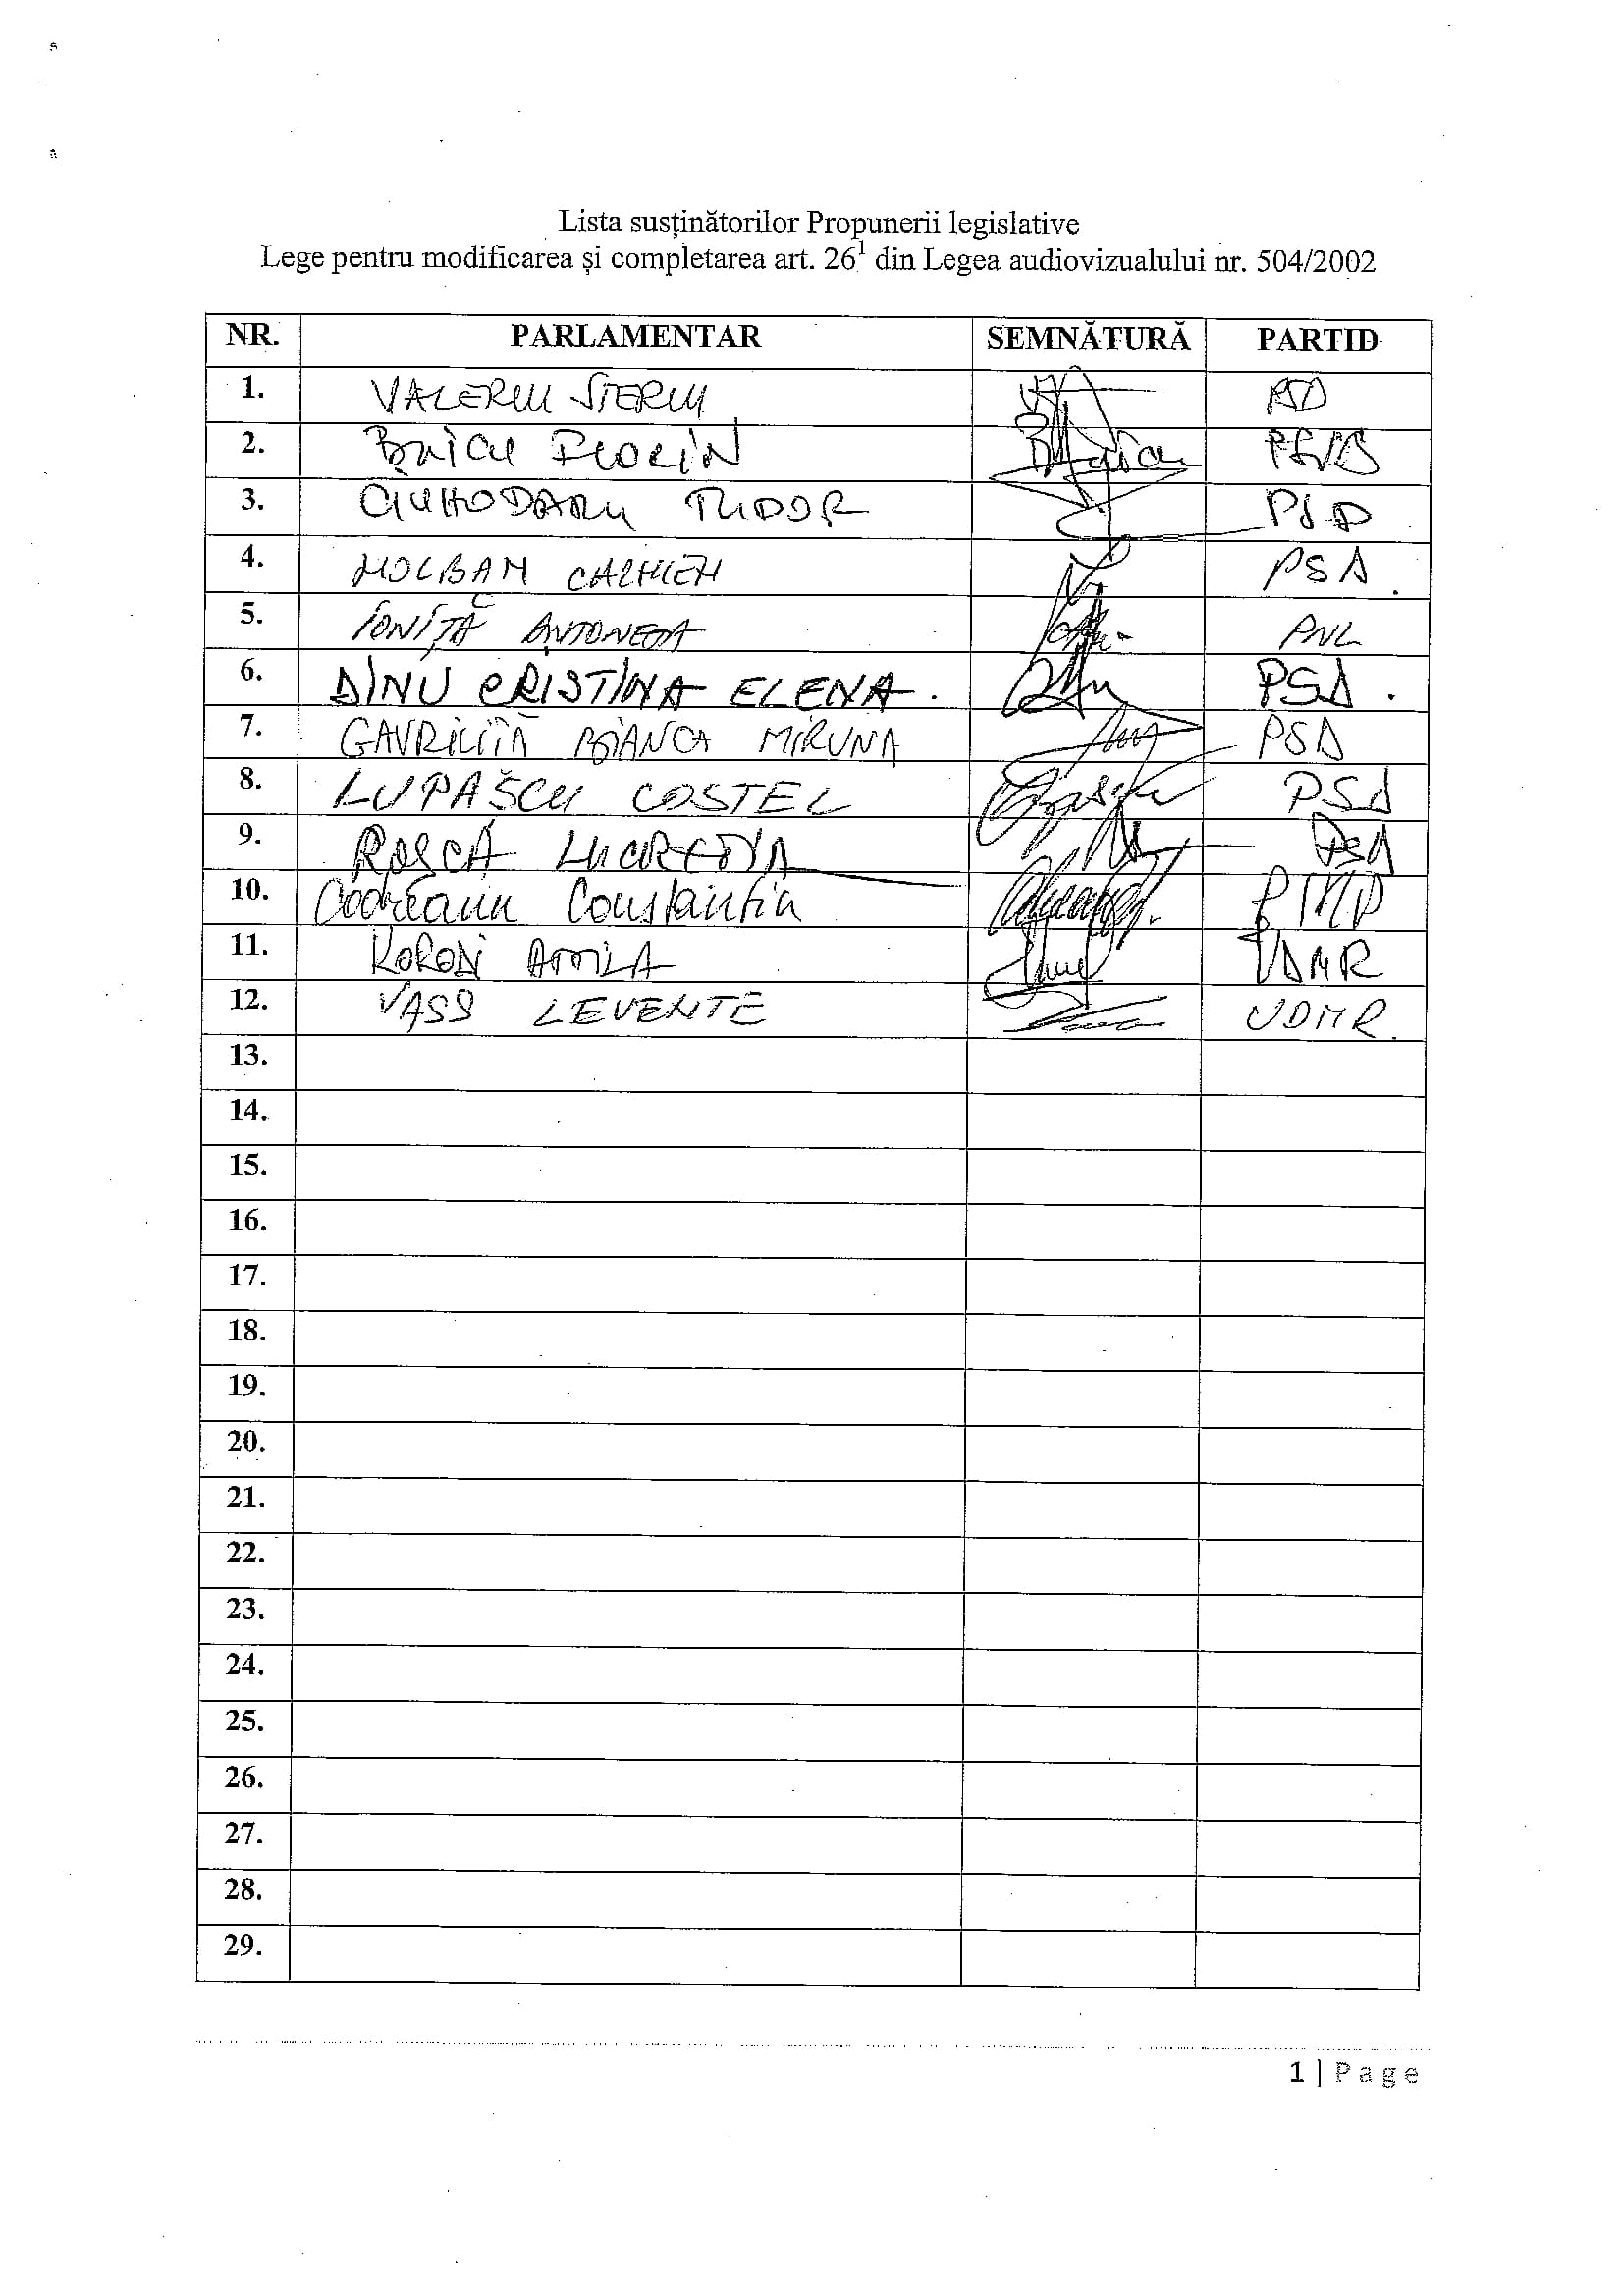 Lista susținătorilor Propunerii legislative
Lege pentru modificarea și completarea art. 26¹ din Legea audiovizualului nr. 504/2002
NR. PARLAMENTAR SEMNĂTURĂ PARTID
1. VALERIU STERIU
2. FLORIN
3. CIUHODARU TUDOR PSD
4. MOCBAM PSD
5. IONIȚĂ ANTONETA PNL
6. DINU CRISTINA ELENA. PSD.
7. GAVRILIȚĂ BIANCA MIRUNA PSD
8. LUPAȘCU COSTEL PSD
9. ROȘCA LUCREȚIA PSD
10. Codreanu Constantin PMP
11. KORODI ATTILA UDMR
12. VASS LEVENTE UDMR.
13.
14.
15.
16.
17.
18.
19.
20.
21.
22.
23.
24.
25.
26.
27.
28.
29.
1 | Page